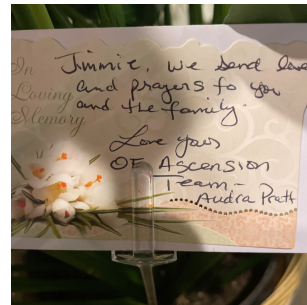 In
Loving
Memory
Jimmie, we send love
and prayers to you
and the family.
Love your
OF Ascension
Team -
Audra Pratt